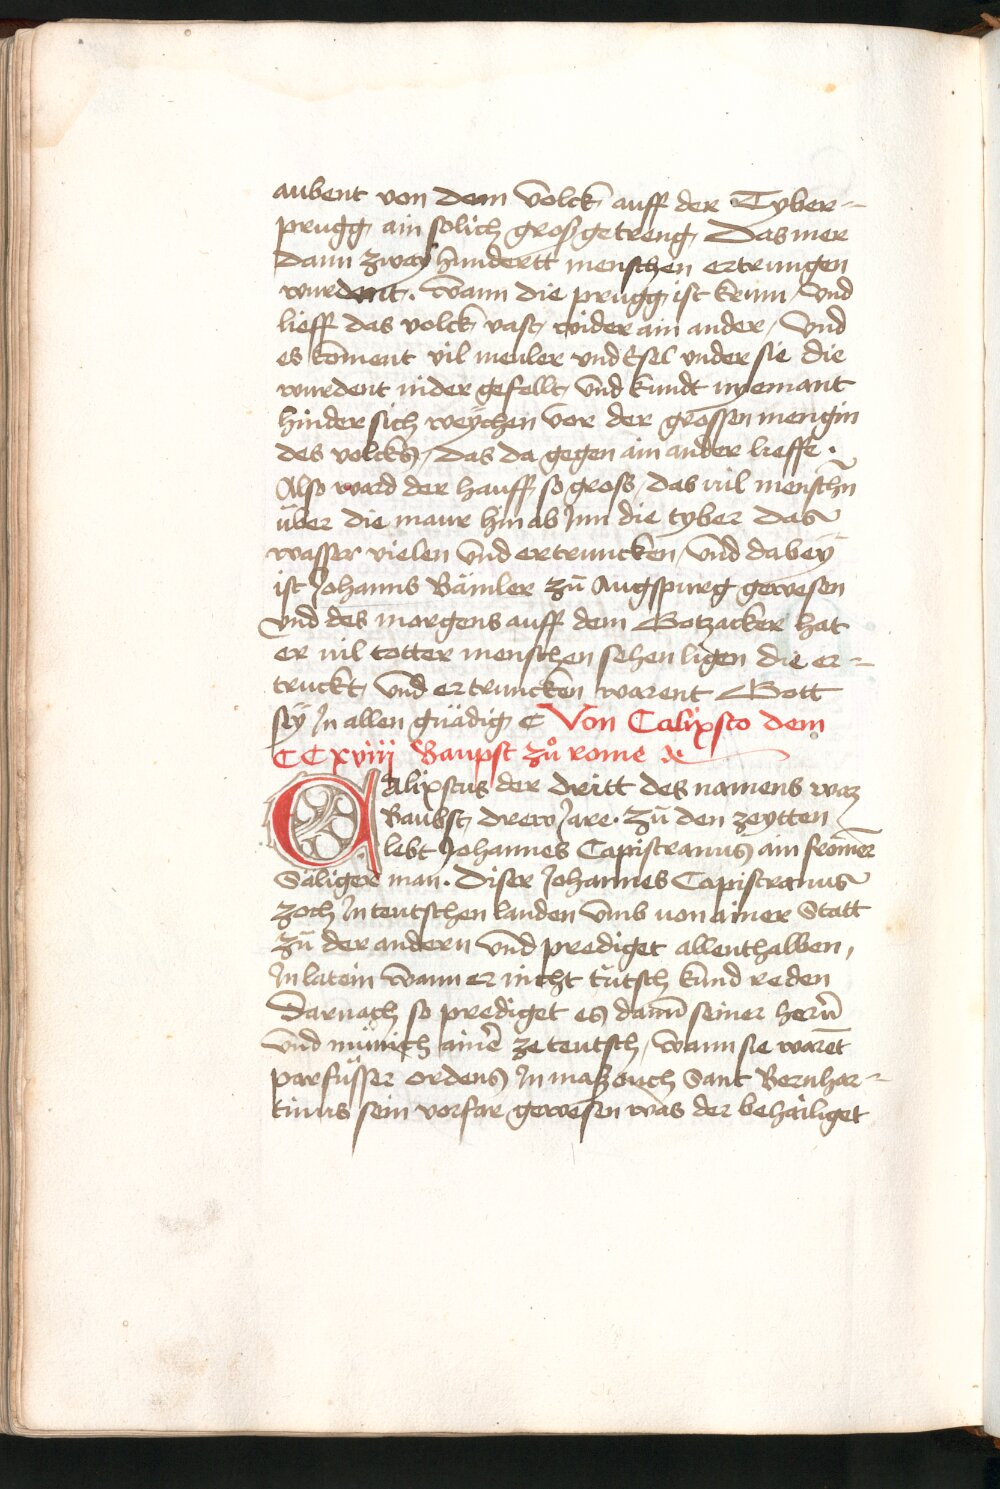 aubent von dem volck auff der Tyber-
prugg ain solich gros getreng Das mer
dann zway hundertt menschen ertrungen
wurdent. wann die prugg ist krum / vnd
lieff das volck vast wider ain ander / Vnd
es koment vil meuler vnd Esel vnder sie die
wurdent nider gefellt vnd kundt nyemant
hinder sich weychen vor der grossen mengin
des volcks / Das da gegen ain ander lieffe.
Also ward der hauff so gross das vil menschn̄
über die maur hin ab Inn die tyber das
wasser vielen vnd ertruncken / vnd dabey
ist Johanns Bämler zu Augspurg gewesen
vnd des morgens auff dem Gotzacker hat
er vil totter menschen sehen ligen die er-
truckt vnd ertruncken warent Gott
sÿ In allen gnädig ⁊c Von Calixsto dem
CCxviii Baupst zuͦ rome ⁊c
Calixstus der dritt des namens waz
Baubst drew Jare. zu den zeytten
lebt Johannes Capistranus ain from̄er
Säliger man. Diser Johannes Capistranus
zoch In teutschen landen vmb von ainer Statt
zu der andern vnd prediget allenthalben,
In latein wann er nicht tütsch kund reden
Darnach so prediget es dann̄ seiner hern̄
vnd münich ainer ze teutsch / wann sie warēt
parfüsser ordens In mass ouch Sant Bernhar-
tinus sein vorfar gewesen was der behailiget